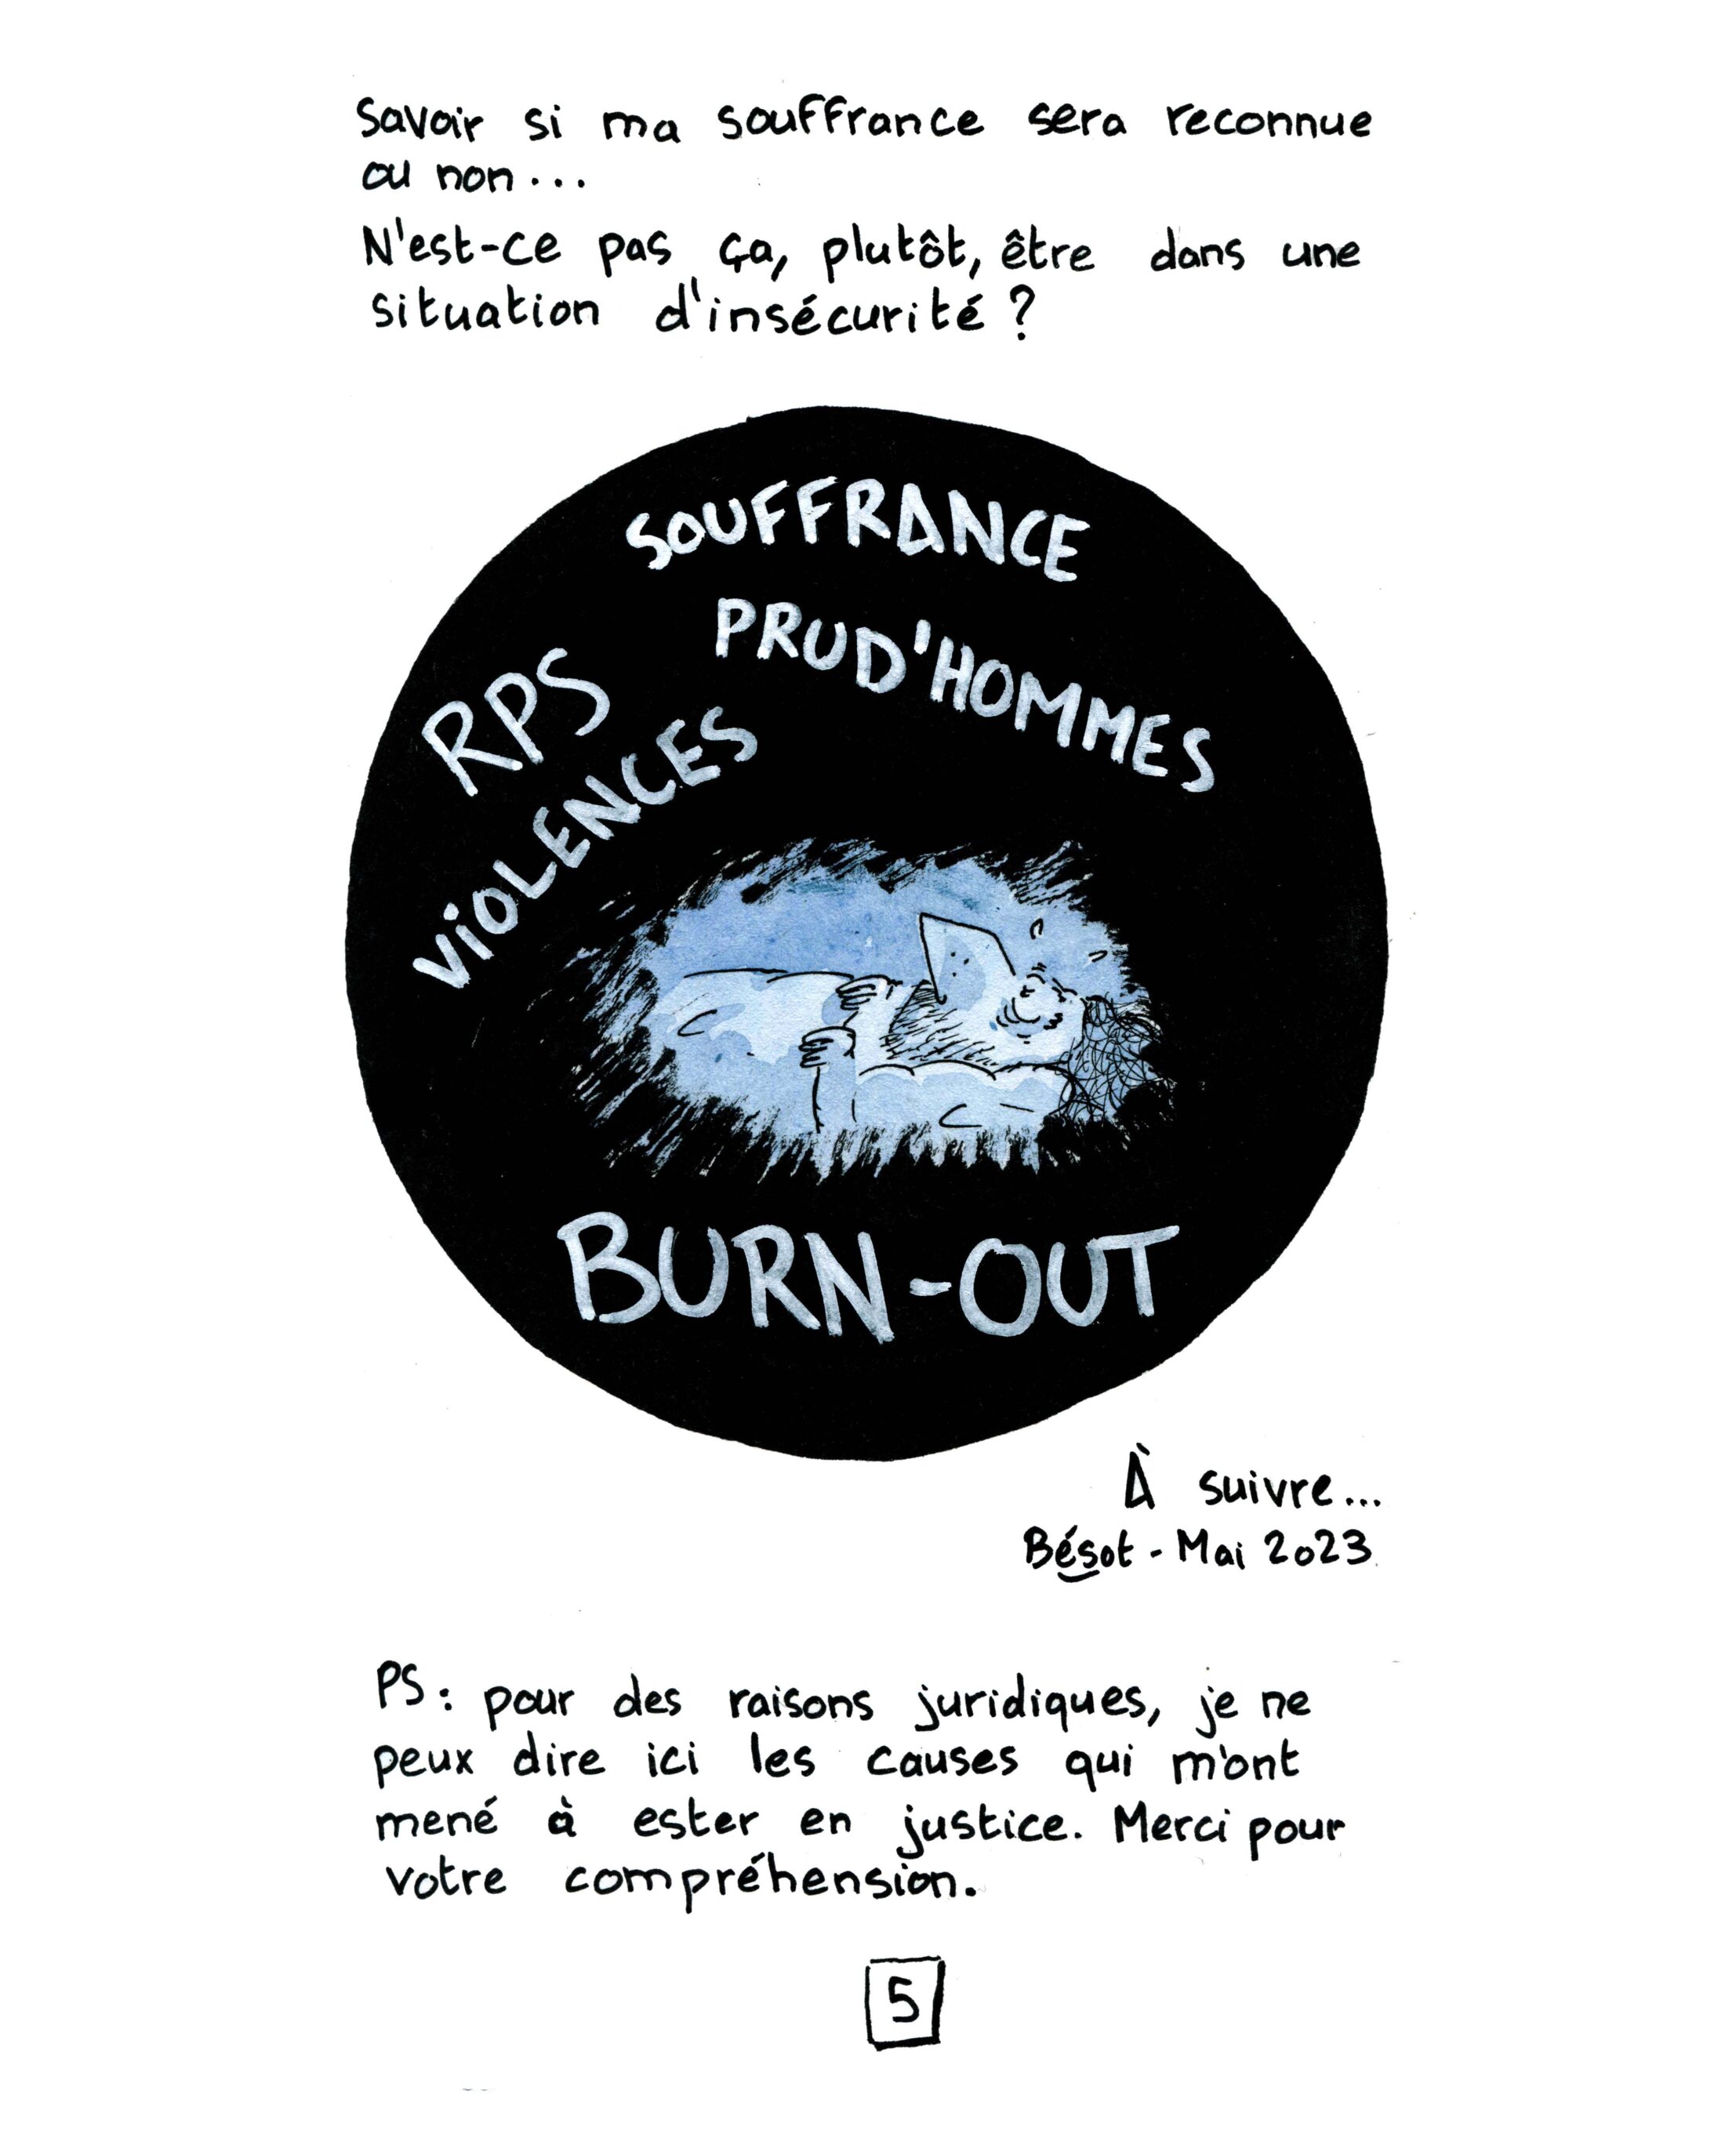 Savoir si ma souffrance sera reconnue
ou non...
N'est-ce pas ça, plutôt, être dans une
situation d'insécurité ?
SOUFFRANCE
PRUD'HOMMES
RPS
VIOLENCES
BURN-OUT
À suivre...
Bésot - Mai 2023
PS : pour des raisons juridiques, je ne
peux dire ici les causes qui m'ont
mené à ester en justice. Merci pour
votre compréhension.
5